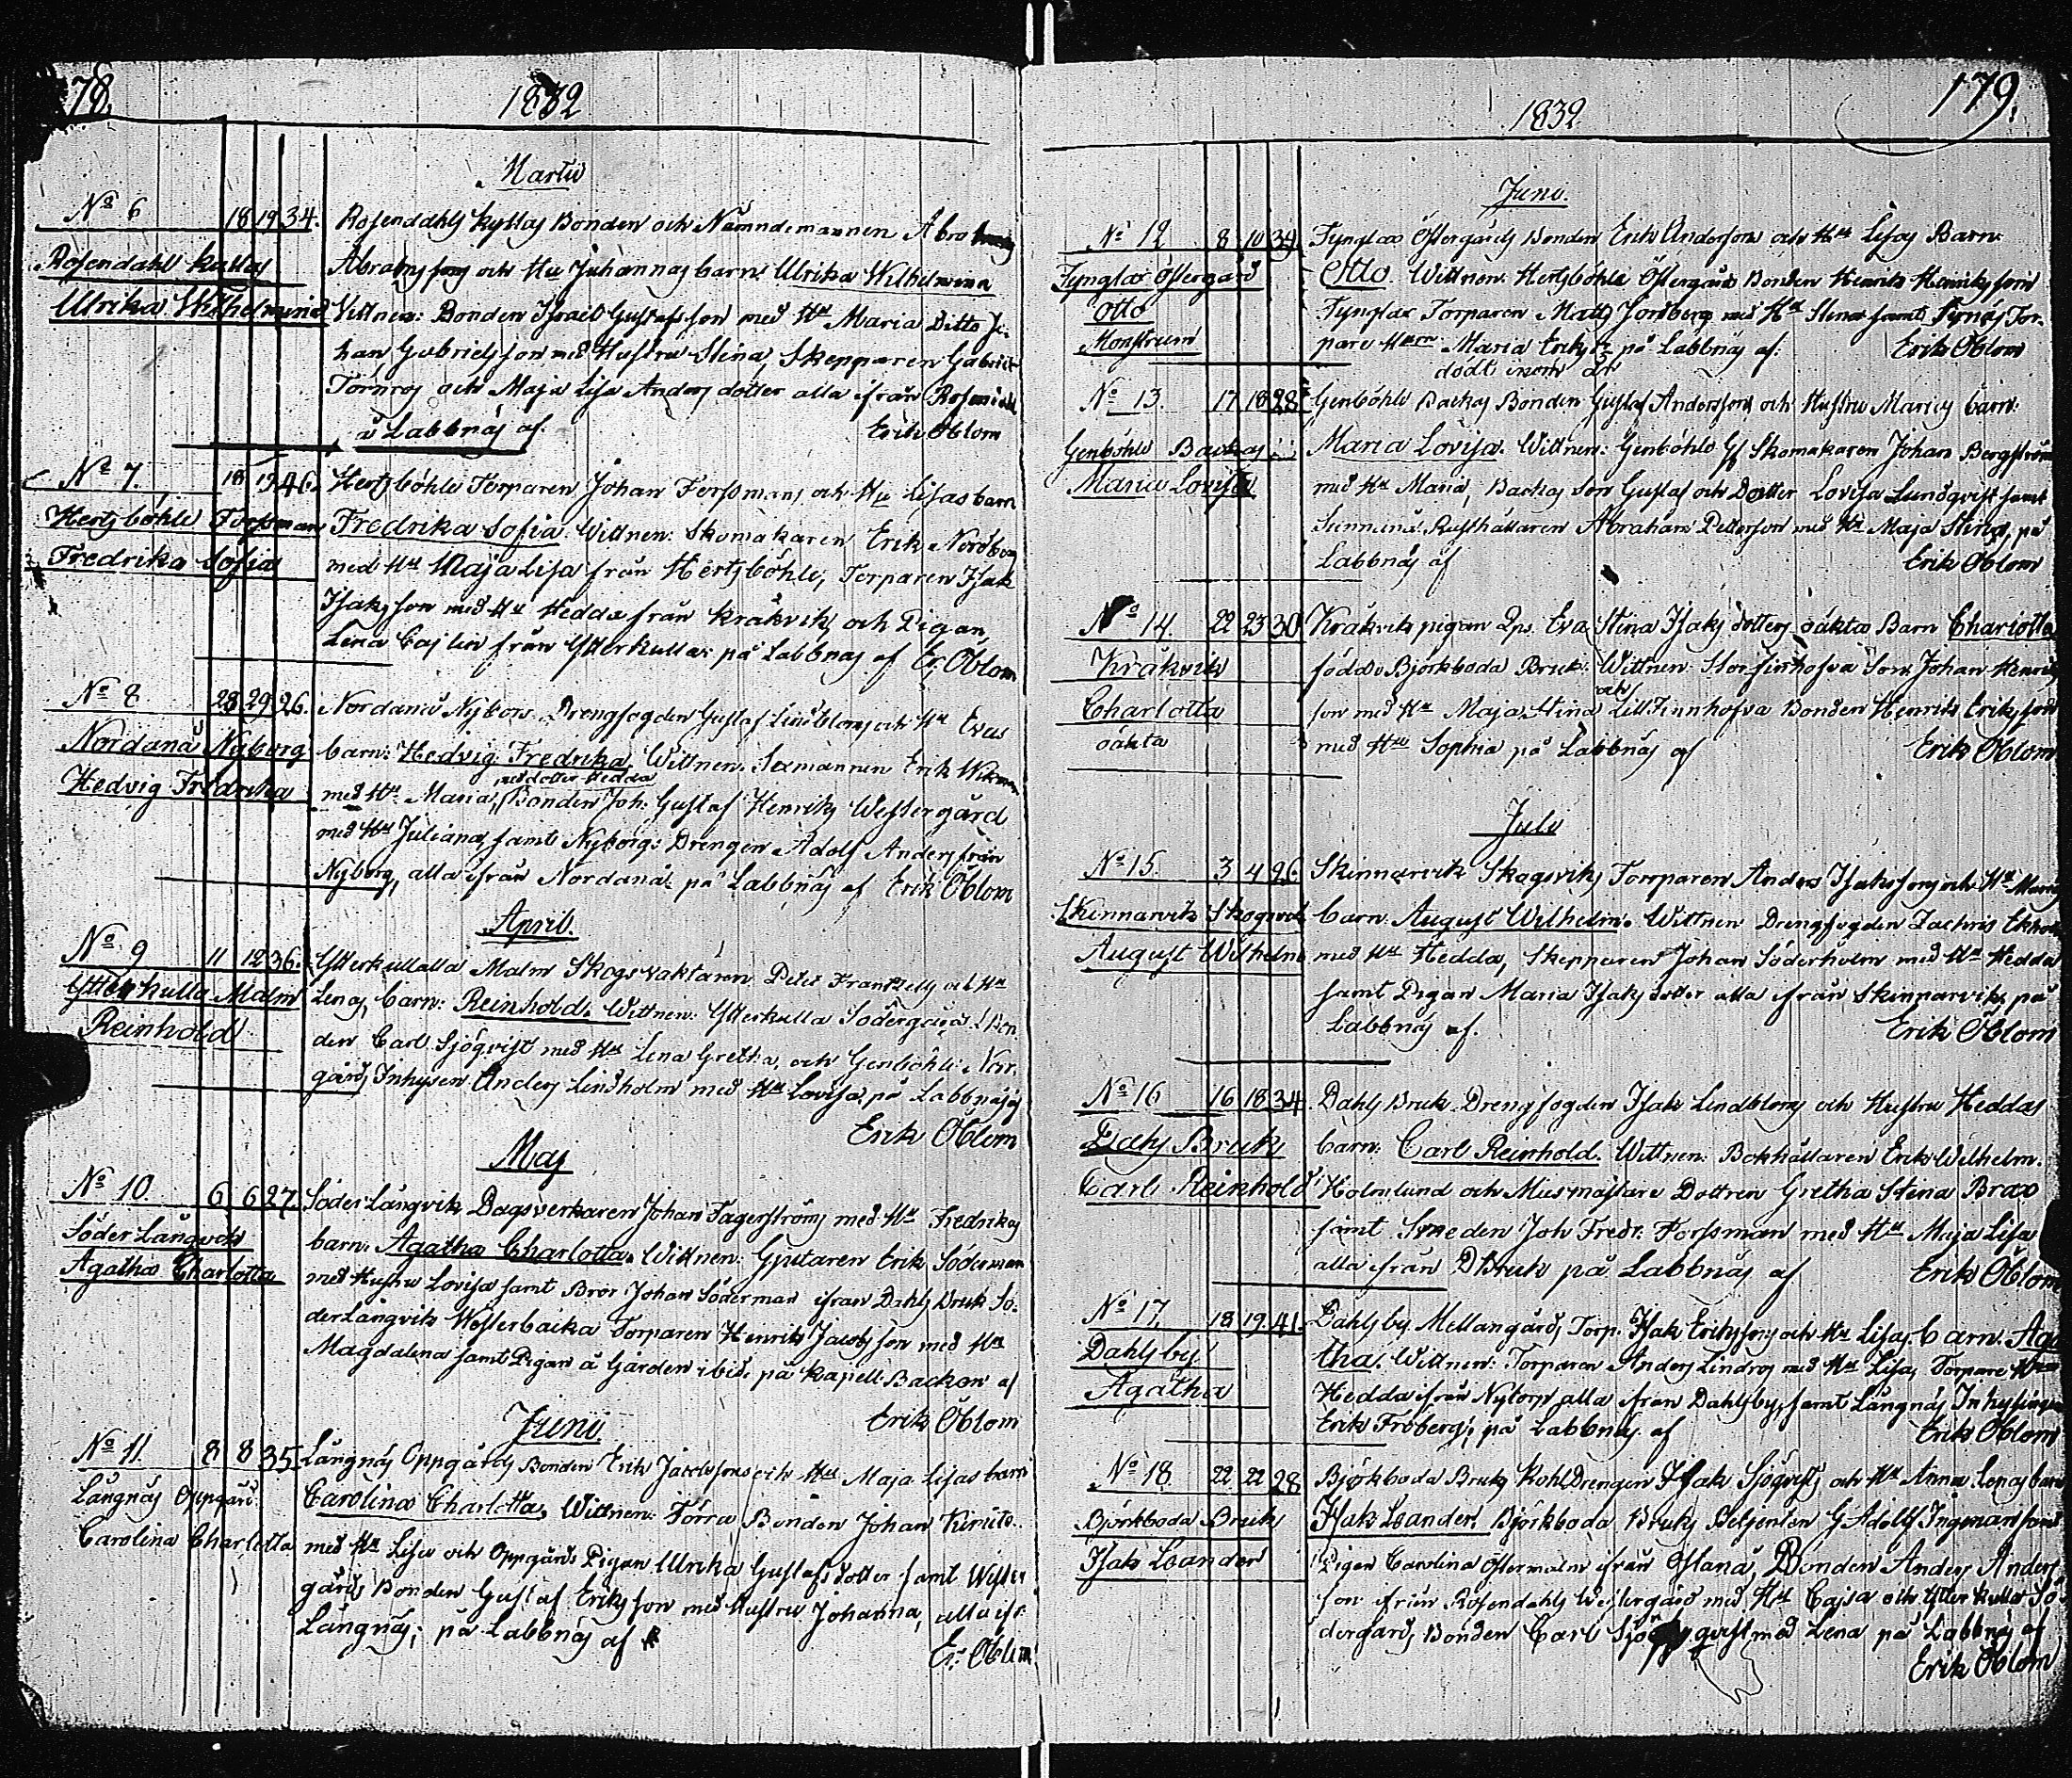 178.
1832
Martii
No 6 18 19 34. Rosendahls Kullas Bonden och Nämndemannen Abrahams
Rosendahl Kullas Abrahams sons och Hu Johannas barn: Ulrika Wilhelmina
Ulrika Wilhelmina Vittnen: Bonden Israel Gustafsson med Hu Maria Ditto Jo-
han Gabrielsson med Hustru Stina, Skepparen Gabriel
Törnros och Maja Lisa Andersdotter alla ifrån Rosendahl
å Labbnäs af Erik Oblom
No 7. 18 19 46. Hertsböhle Torparen Johan Forssmans och Hu Lisas barn
Hertsböhle Forssman Fredrika Sofia. Wittnen: Skomakaren Erik Nordberg
Fredrika Sofia med Hu Maja Lisa från Hertsböhle, Torparen Isak
Isaksson med Hu Hedda från Kråkvik, och Pigan
Lena Caj från Ytterkulla: på Labbnäs af Er. Oblom
No 8 28 29 26. Nordanå Nybors Drengfogden Gustaf Lindbloms och Hu Evas
Nordanå Nyborg barn: Hedvig Fredrika. Wittnen. Sexmannen Erik
med dotter Hedda
Hedvig Fredrika med Hu Maria, Bonden Joh: Gustaf Henriks Westergård
med Hu Juliana, samt Nyborgs Drengen Adolf Anders från
Nyborg, alla ifrån Nordanå på Labbnäs af Erik Oblom
April.
No 9 11 12 36. Ytterkulla Malm Skogsvaktaren Peter och Hu
Ytterkulla Malm Lenas barn: Reinhold. Wittnen: Ytterkulla Södergårds Bon-
Reinhold den Carl Sjöqvist med Hu Lena Gretha, och Genböhle Norr-
gårds Inhysen Anders Lindholm med Hu Lovisa, på Labbnäs af
Erik Oblom
Maj
No 10. 6 6 27. Söder Långvik Dagsverkaren Johan Fagerströms med Hu Fredrikas
Söder Långvik barn: Agatha Charlotta. Wittnen: Gjutaren Erik Söderman
Agatha Charlotta med Hustru Lovisa samt Bror Johan Söderman ifrån Dahls Bruk Sö-
derLångvik Westerbacka Torparen Henrik Jacobsson med Hu
Magdalena samt Pigan å Gården ibid. på Kapell Backen af
Erik Oblom
Junii
No 11. 8 8 35. Långnäs Oppgårds Bonden Erik Jacobssons och Hu Maja Lisas barn
Långnäs Oppgård Carolina Charlotta, Wittnen: Förra Bonden Johan
Carolina Charlotta med Hu Lisa och Oppgårds Pigan Ulrika Gustafsdotter samt Wester
gårds Bonden Gustaf Eriksson med Hustru Johanna, alla ifr.
Långnäs; på Labbnäs af Er. Oblom
179.
1832
Juni.
No 12 8 10 39. Fynglax Östergårds Bonden Erik Anderssons och Hu Lisas Barn
Fynglax Östergård Otto. Wittnen. Hertsböhle Östergårds Bonden Henrik Henriksson
Otto Fynglax Torparen Matts Jordberg med Hu Stina samt Tor-
Monstrum pare Hu Maria Eriks dr på Labbnäs af: Erik Oblom
No 13. 17 18 28. Genböhle Backas Bonden Gustaf Anderssons och Hustru Marias barn:
Genböhle Backas Maria Lovisa. Wittnen: Genböhle Gf Skomakaren Johan Bergström
Maria Lovisa med Hu Maria, Backas Son Gustaf och Dotter Lovisa Lundqvist samt
Sunnanå Rusthållaren Abraham Pettersson med Hu Maja Stina, på
Labbnäs af Erik Oblom
No 14. 22 23 30. Kråkvik pigan Eva Stina Isaksdotters oäkta Barn Charlotta
Kråkvik födde Björkboda Bruk: Wittnen: Stor finhofva Son Johan Henriks
och
Charlotta son med Hu Maja Stina LillFinnhofva Bonden Henrik Eriksson
oäkta med Hu Sophia på Labbnäs af Erik Oblom
Julii
No 15. 3 4 26 Skinnarvik Skogsviks Torparen Anders Isakssons och Hu Marias
Skinnarvik Skogsvik barn: August Wilhelm. Wittnen Drengfogden Zachris
August Wilhelm med Hu Hedda, Skepparen Johan Söderholm med Hu Hedda
samt Pigan Maria Isaksdotter alla ifrån Skinnarvik på
Labbnäs af. Erik Oblom
No 16 16 18 34. Dahls Bruk Drengfogden Isak Lindbloms och Hustru Heddas
Dahls Bruk barn: Carl Reinhold. Wittnen: Bokhållaren Erik Wilhelm.
Carl Reinhold Holmlund och Musmästare Dottren Gretha Stina Brax
samt Smeden Joh Fredr: Forssman med Hu Maja Lisa
alla ifrån DBruk på Labbnäs af Erik Oblom
No 17. 18 19 41. Dahlsby Mellangårds Torp. Isak Erikssons och Hu Lisas barn: Aga
Dahlsby tha. Wittnen: Torparen Anders Lindros med Hu Lisa, Torpare
Agatha Hedda ifrån Nytorp alla ifrån Dahlsby, samt Långnäs Inhysingen
Erik Froberg; på Labbnäs af Erik Oblom
No 18. 22 22 28 Björkboda Bruks KohlDrengen Isak Sjöqvists och Hu Anna Lenas barn
Björkboda Bruk Isak Leander. Björkboda Bruks Betjenten G Adolf Ingmansson
Isak Leander Pigan Carolina Östermalm ifrån Ölana, Bonden Anders Anders
son ifrån Rosendahls Westergård med Hu Cajsa och Ytterkulla Sö
dergårds Bonden Carl Sjöqvist med Lena på Labbnäs af
Erik Oblom